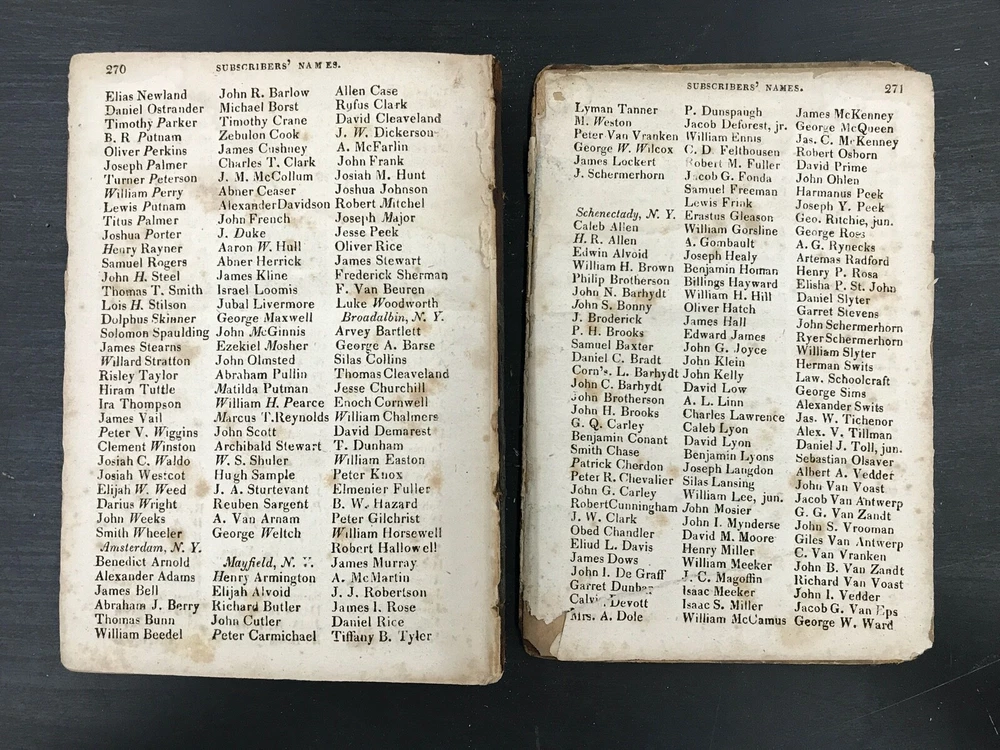 270
SUBSCRIBERS' NAMES.
Elias Newland
Daniel Ostrander
Timothy Parker
B. R Putnam
Oliver Perkins
Joseph Palmer
Turner Peterson
William Perry
Lewis Putnam
Titus Palmer
Joshua Porter
Henry Rayner
Samuel Rogers
John H. Steel
Thomas T. Smith
Lois H. Stilson
Dolphus Skinner
Solomon Spaulding
James Stearns
Willard Stratton
Risley Taylor
Hiram Tuttle
Ira Thompson
James Vail
Peter V. Wiggins
Clement Winston
Josiah C. Waldo
Josiah Westcot
Elijah W. Weed
Darius Wright
John Weeks
Smith Wheeler
Amsterdam, N. Y.
Benedict Arnold
Alexander Adams
James Bell
Abraham J. Berry
Thomas Bunn
William Beedel
John R. Barlow
Michael Borst
Timothy Crane
Zebulon Cook
James Cushney
Charles T. Clark
J. M. McCollum
Abner Ceaser
Alexander Davidson
John French
J. Duke
Aaron W. Hull
Abner Herrick
James Kline
Israel Loomis
Jubal Livermore
George Maxwell
John McGinnis
Ezekiel Mosher
John Olmsted
Abraham Pullin
Matilda Putman
William H. Pearce
Marcus T. Reynolds
John Scott
Archibald Stewart
W. S. Shuler
Hugh Sample
J. A. Sturtevant
Reuben Sargent
A. Van Arnam
George Weltch
Mayfield, N. Y.
Henry Armington
Elijah Alvoid
Richard Butler
John Cutler
Peter Carmichael
Allen Case
Rufus Clark
David Cleaveland
J. W. Dickerson
A. McFarlin
John Frank
Josiah M. Hunt
Joshua Johnson
Robert Mitchel
Joseph Major
Jesse Peek
Oliver Rice
James Stewart
Frederick Sherman
F. Van Beuren
Luke Woodworth
Broadalbin, N. Y.
Arvey Bartlett
George A. Barse
Silas Collins
Thomas Cleaveland
Jesse Churchill
Enoch Cornwell
William Chalmers
David Demarest
T. Dunham
William Easton
Peter Knox
Elmenier Fuller
B. W. Hazard
Peter Gilchrist
William Horsewell
Robert Hallowell
James Murray
A. McMartin
J. J. Robertson
James I. Rose
Daniel Rice
Tiffany B. Tyler
SUBSCRIBERS' NAMES.
271
Lyman Tanner
M. Weston
Peter Van Vranken
George W. Wilcox
James Lockert
J. Schermerhorn
Schenectady, N. Y.
Caleb Allen
H. R. Allen
Edwin Alvoid
William H. Brown
Philip Brotherson
John N. Barhydt
John S. Bonny
J. Broderick
P. H. Brooks
Samuel Baxter
Daniel C. Bradt
Corn's. L. Barhydt
John C. Barhydt
John Brotherson
John H. Brooks
G. Q. Carley
Benjamin Conant
Smith Chase
Patrick Cherdon
Peter R. Chevalier
John G. Carley
Robert Cunningham
J. W. Clark
Obed Chandler
Eliud L. Davis
James Dows
John I. De Graff
Garret Dunbar
Devott
Mrs. A. Dole
P. Dunspaugh
Jacob Deforest, jr.
William Ennis
C. D Felthousen
Robert M. Fuller
Jacob G. Fonda
Samuel Freeman
Lewis Frink
Erastus Gleason
William Gorsline
A. Gombault
Joseph Healy
Benjamin Homan
Billings Hayward
William H. Hill
Oliver Hatch
James Hall
Edward James
John G. Joyce
John Klein
John Kelly
David Low
A. L. Linn
Charles Lawrence
Caleb Lyon
David Lyon
Benjamin Lyons
Joseph Langdon
Silas Lansing
William Lee, jun.
John Mosier
John I. Mynderse
David M. Moore
Henry Miller
William Meeker
J. C. Magoffin
Isaac Meeker
Isaac S. Miller
William McCamus
James McKenney
George McQueen
Jas. C. McKenney
Robert Osborn
David Prime
John Ohlen
Harmanus Peek
Joseph Y. Peek
Geo. Ritchie, jun.
George Ross
A. G. Rynecks
Artemas Radford
Henry P. Rosa
Elisha P. St. John
Daniel Slyter
Garret Stevens
John Schermerhorn
Ryer Schermerhorn
William Slyter
Herman Swits
Law. Schoolcraft
George Sims
Alexander Swits
Jas. W. Tichenor
Alex. V. Tillman
Daniel J. Toll, jun.
Sebastian Olsaver
Albert A. Vedder
John Van Voast
Jacob Van Antwerp
G. G. Van Zandt
John S. Vrooman
Giles Van Antwerp
C. Van Vranken
John B. Van Zandt
Richard Van Voast
John I. Vedder
Jacob G. Van Eps
George W. Ward